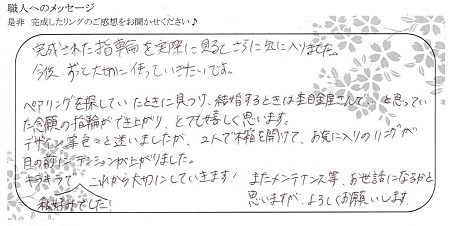 職人へのメッセージ
是非 完成したリングのご感想をお聞かせください♪
完成された指輪を実際に見てさらに気に入りました。
今後、ずっと大切に使っていきたいです。
ペアリングを探していたときに見つけ、結婚するときは杢目金屋さんで…と思ってい
た念願の指輪ができ上がり、とても嬉しく思います。
デザイン等色々と迷いましたが、2人で木箱を開けて、お気に入りのリングが
目の前にテンションが上がりました。
キラキラで これから大切にしていきます!
私好みでした!
またメンテナンス等、お世話になるかと
思いますが、よろしくお願いします。